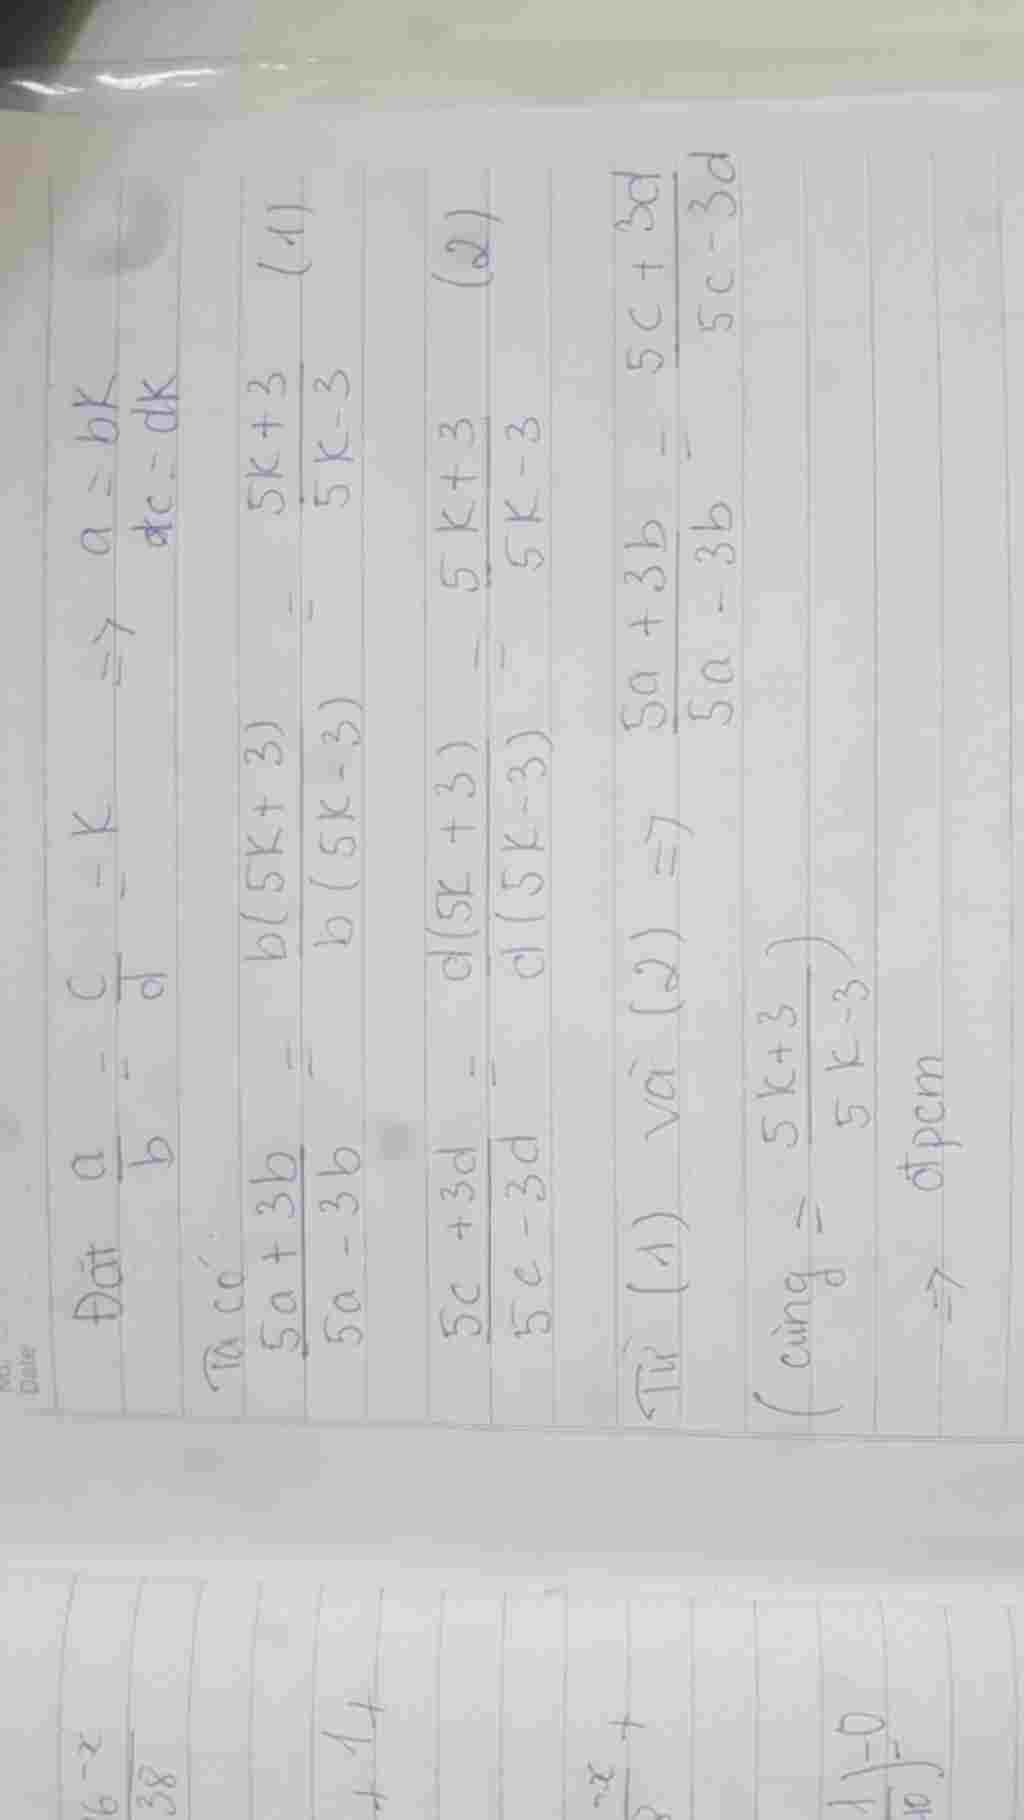 No.
Date
Đặt a/b = c/d = K => a = bK
c = dK
Ta có
(5a + 3b)/(5a - 3b) = b(5K + 3)/b(5K - 3) = (5K + 3)/(5K - 3) (1)
(5c + 3d)/(5c - 3d) = d(5K + 3)/d(5K - 3) = (5K + 3)/(5K - 3) (2)
Từ (1) và (2) => (5a + 3b)/(5a - 3b) = (5c + 3d)/(5c - 3d)
(cùng = (5K + 3)/(5K - 3))
=> đpcm
6 - x
38
+ 1 +
- x
+
1
) = 0